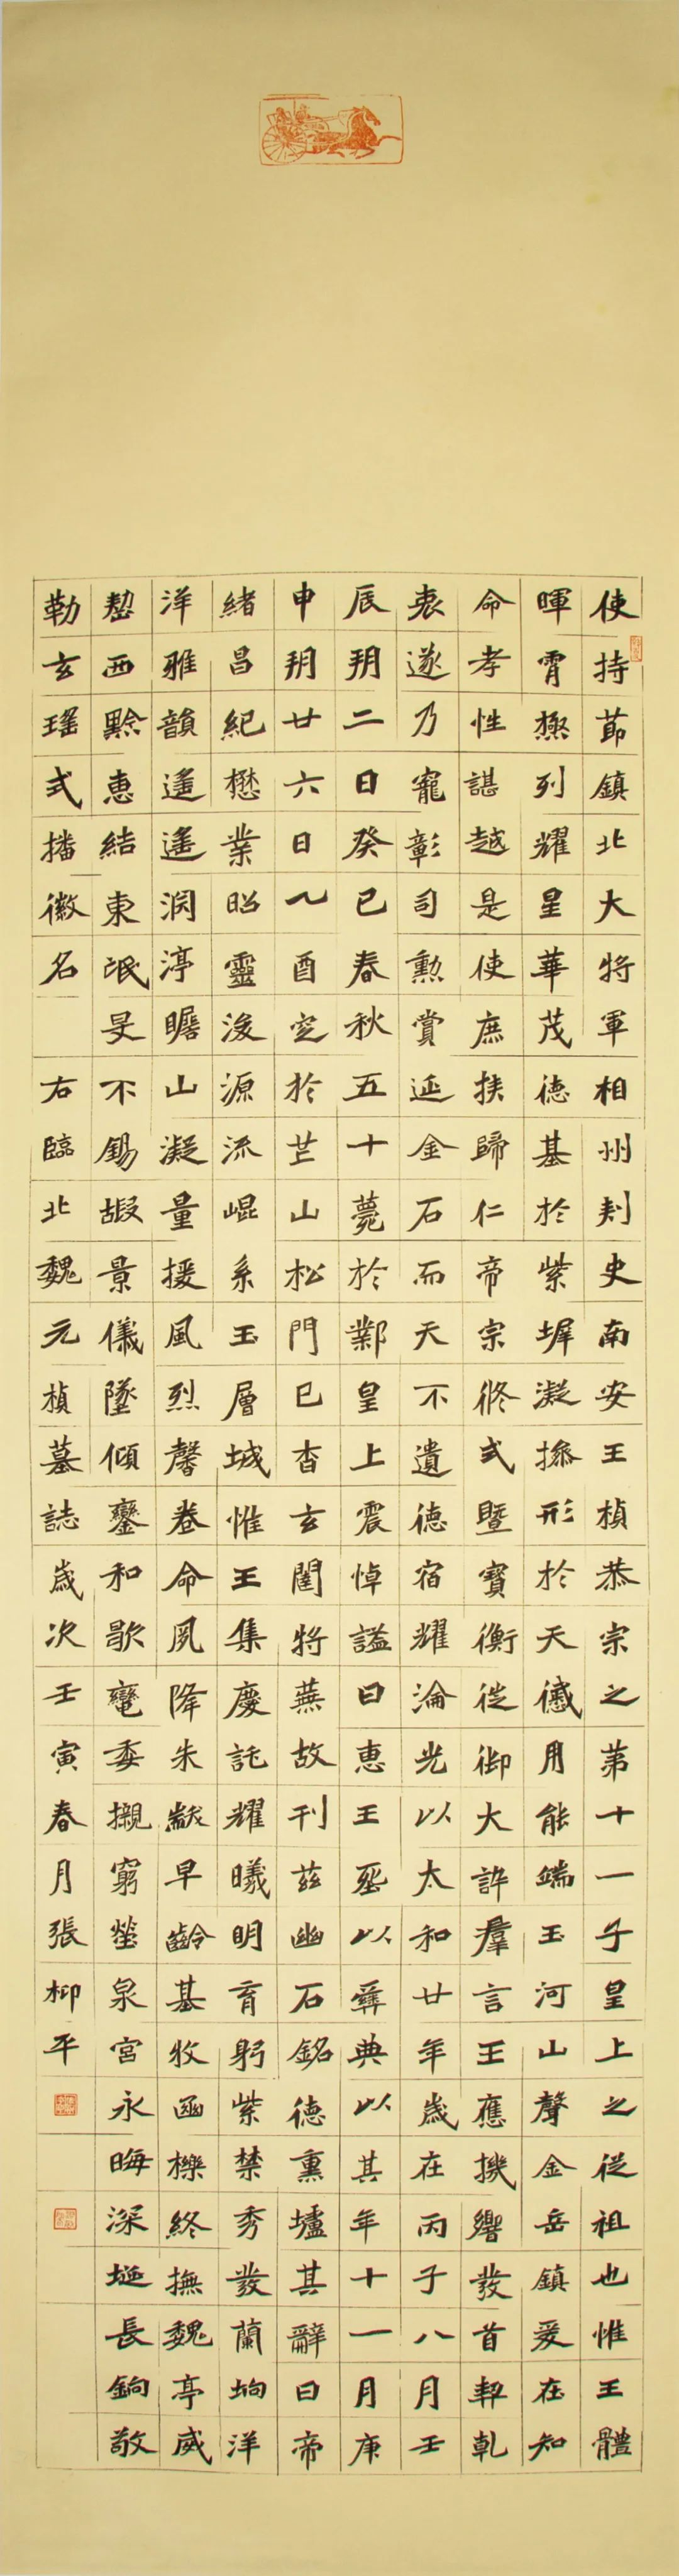 使持節鎮北大將軍相州刺史南安王楨恭宗之苐十一子皇上之從祖也惟王體
暉霄極列耀星華茂德基於紫墀凝操形於天儀用能端玉河山聲金岳鎮爰在知
命孝性諶越是使庶族歸仁帝宗攸式暨寶衡徙御大訊羣言王應機響發首契乹
衷遂乃寵彰司勳賞延金石而天不遺德宿耀淪光以太和廿年歲在丙子八月壬
辰朔二日癸巳春秋五十薨於鄴皇上震悼謚曰惠王䘮以彝典以其年十一月庚
申朔廿六日乙酉窆於芒山松門已杳玄闈將蕪故刊茲幽石銘德熏壚其辭曰帝
緒昌紀懋業昭靈浚源流崐系玉層城惟王集慶託耀曦明育躬紫禁秀發蘭坰洋
洋雅韻遙遙淵渟瞻山凝量援風烈馨卷命夙降朱黻早齡基牧函櫟終撫魏亭威
整西黔惠結東氓旻不錫嘏景儀墜傾鑾和歇轊委櫬窮塋泉宮永晦深埏長鋦敬
勒玄瑤式播徽名 右臨北魏元楨墓誌歲次壬寅春月張柳平